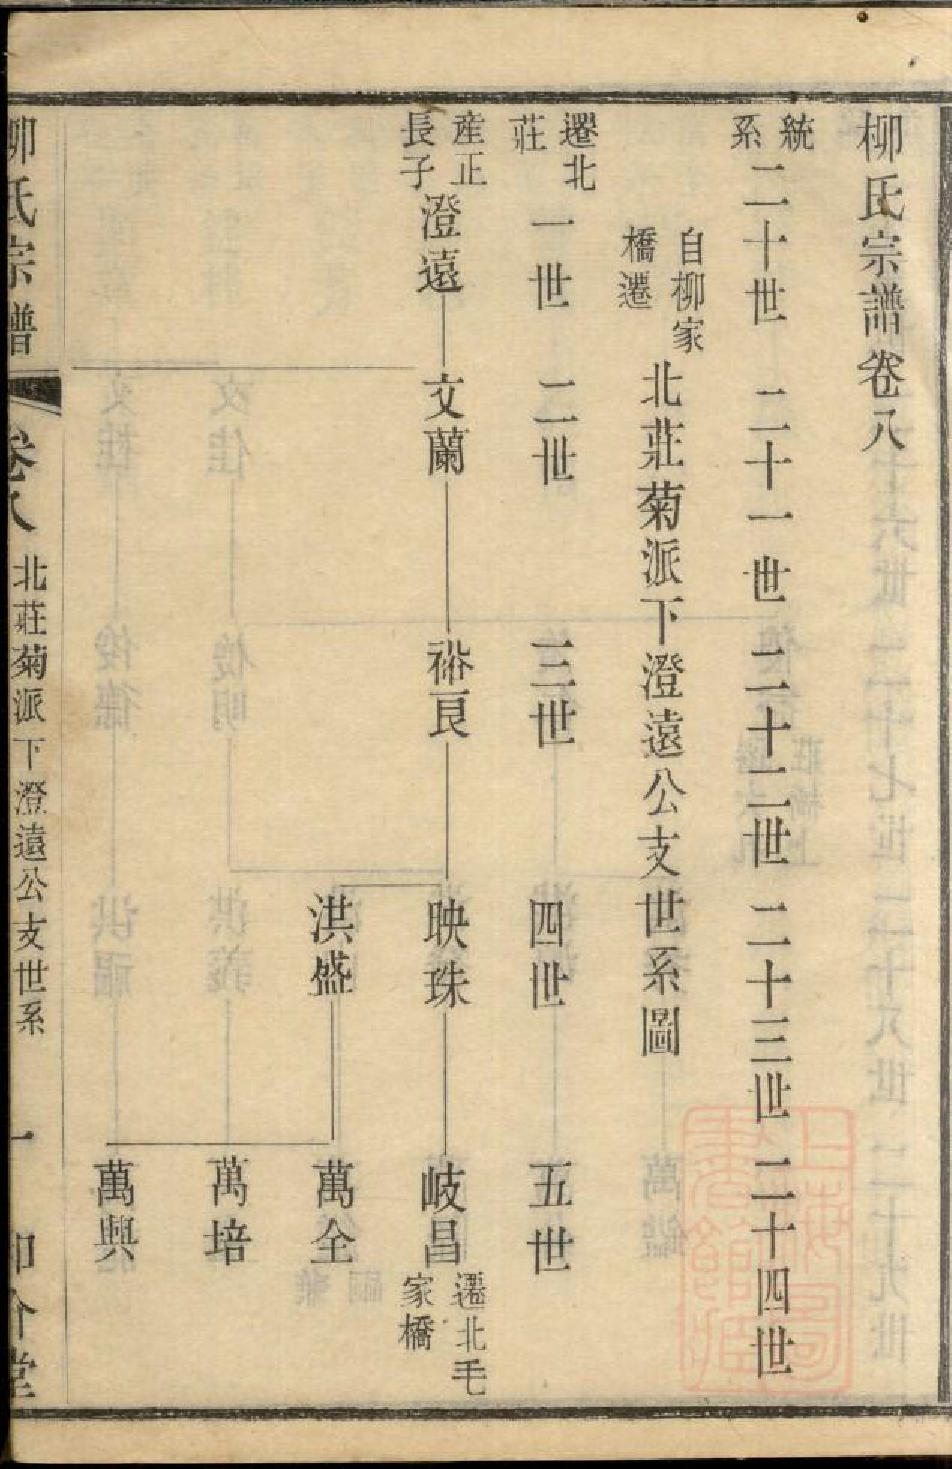 柳氏宗譜卷八
統系 二十世 二十一世 二十二世 二十三世 二十四世
自柳家橋遷 北莊菊派下澄遠公支世系圖
遷北莊 一世 二世 三世 四世 五世
產正長子 澄遠 文蘭 裕良 映珠 岐昌 遷北毛家橋
洪盛 萬全
萬培
萬興
柳氏宗譜 卷八 北莊菊派下澄遠公支世系 一